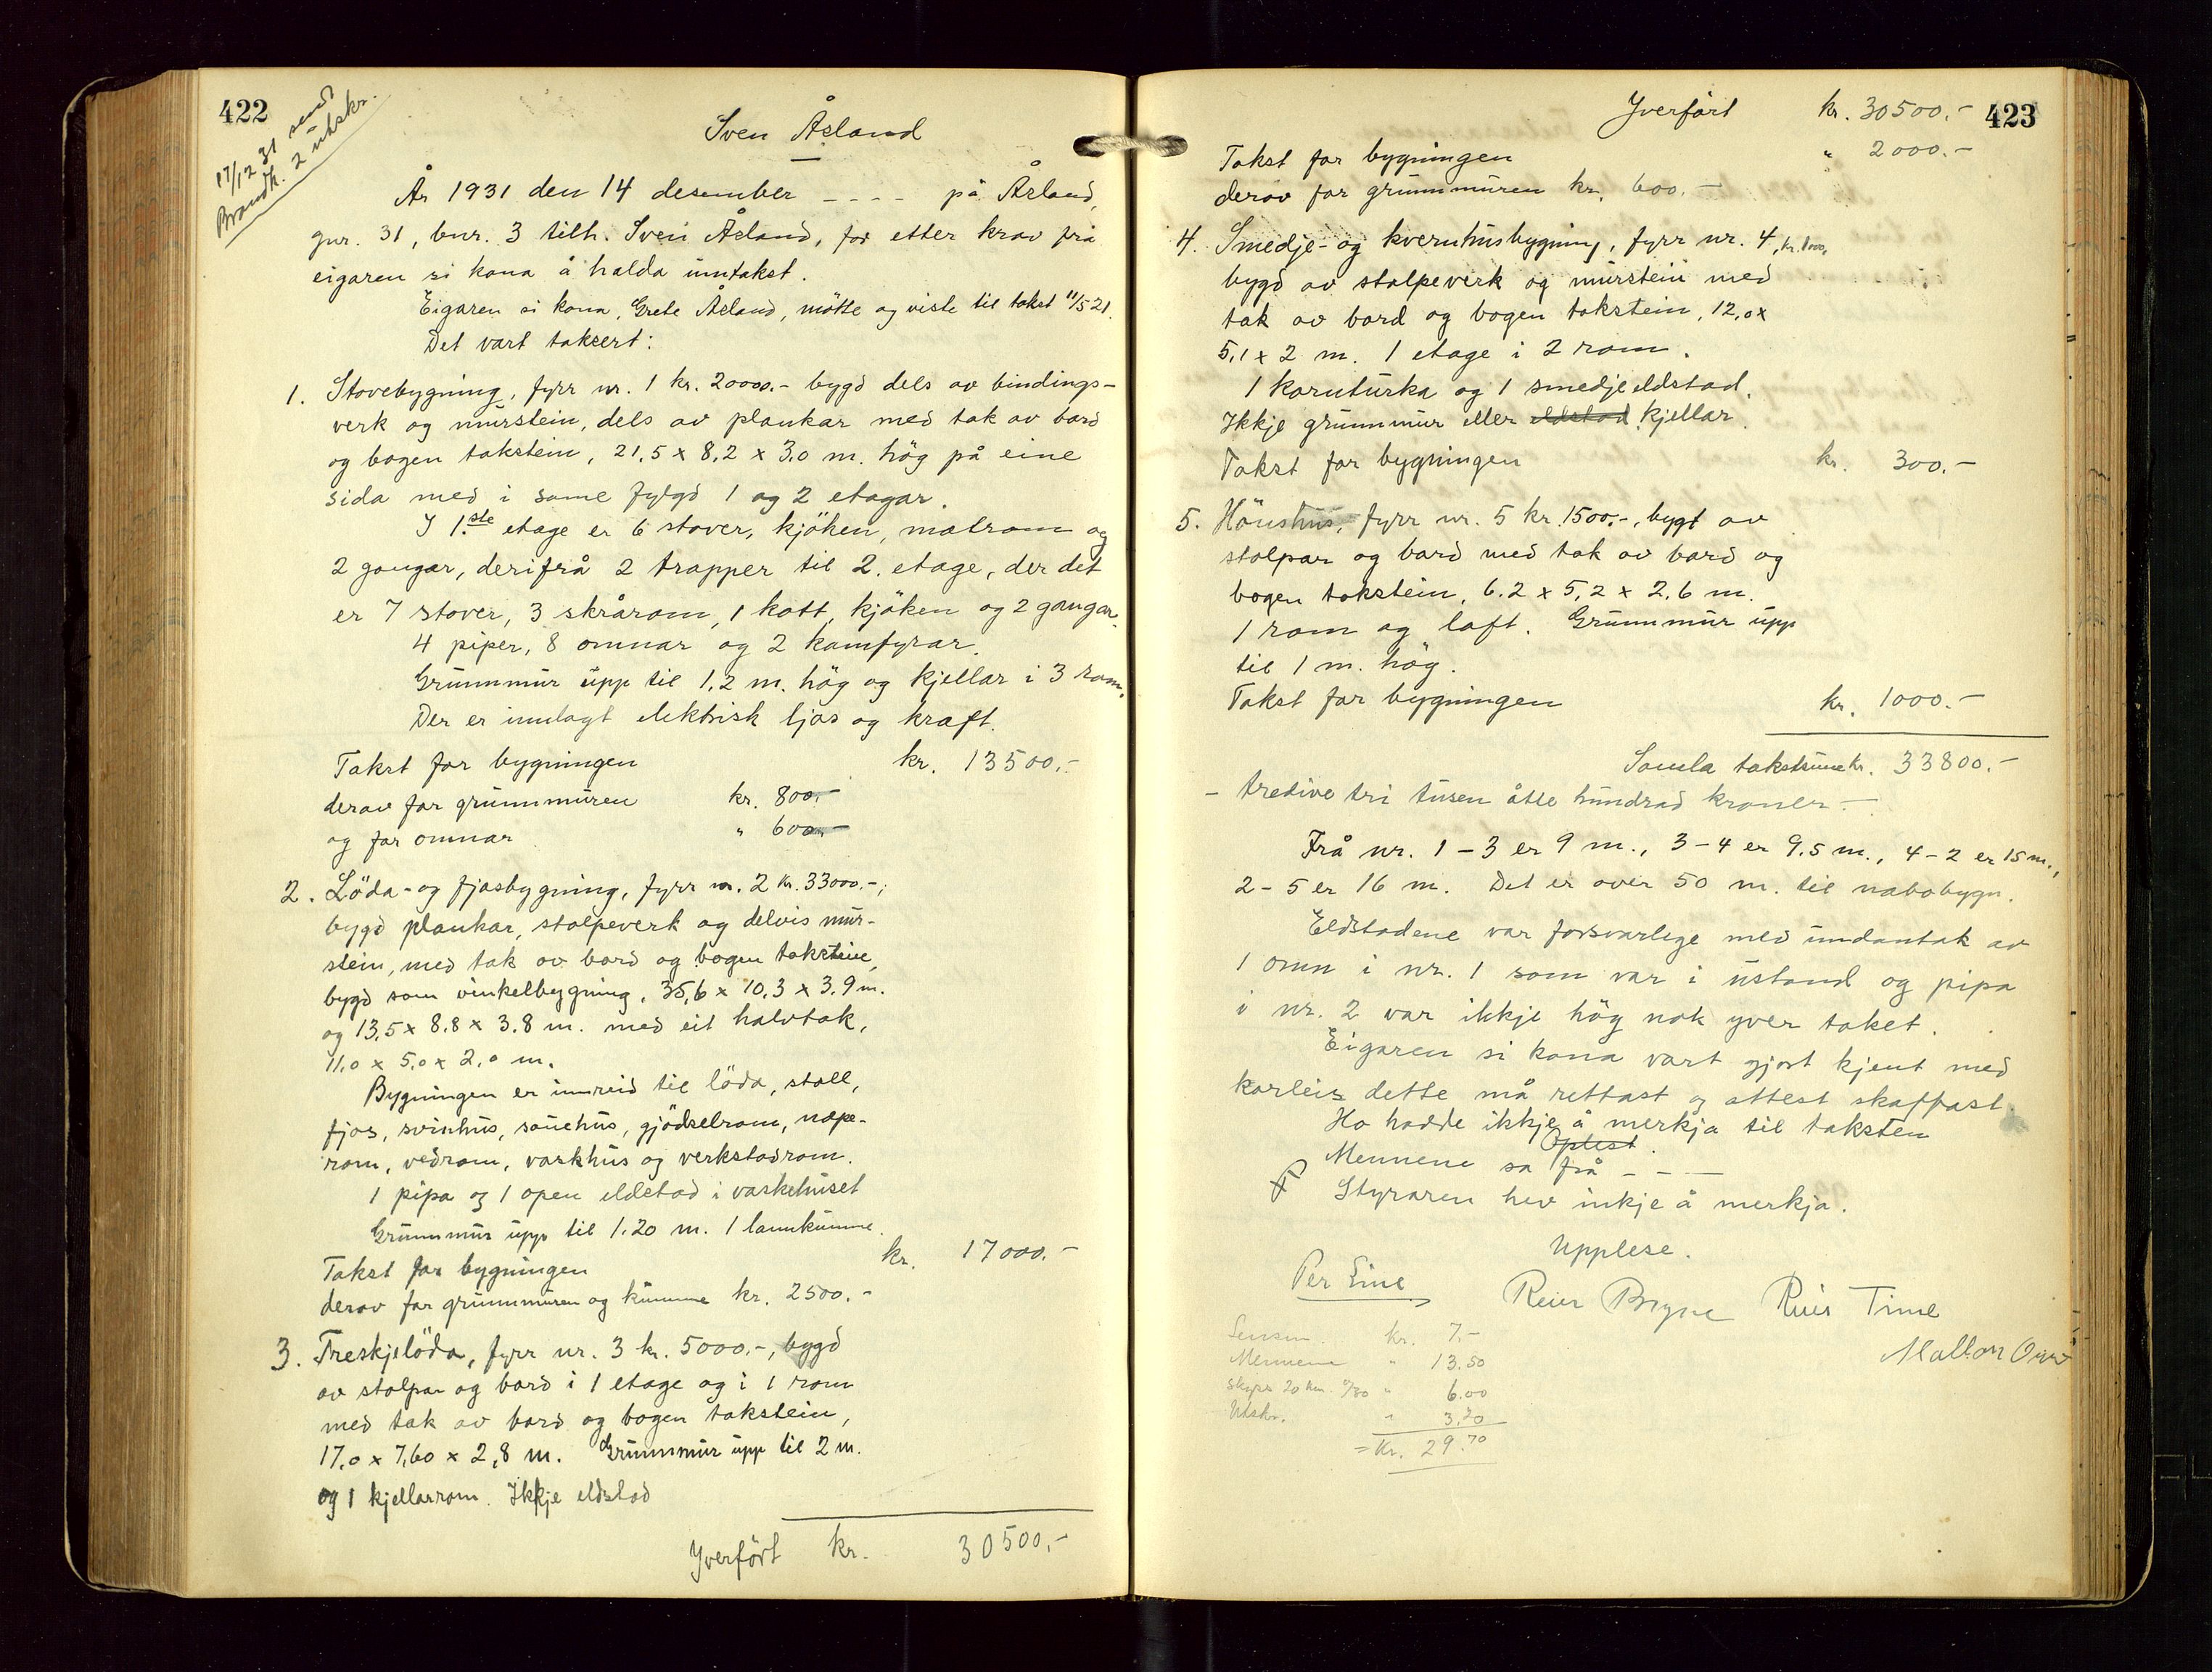 422
17/12 31 send
Brandk. 2 utskr.
Sven Åsland
År 1931 den 14 desember - - - - på Åsland,
gnr. 31, bnr. 3 tilh. Sven Åsland, for etter krav frå
eigaren si kona å halda umtakst.
Eigaren si kona, Grete Åsland, mötte og viste til takst 11/5 21.
Det vart taksert:
1. Stovebygning, fyrr nr. 1 kr. 20000.- bygd dels av bindings-
verk og mürstein, dels av plankar med tak av bord
og bogen takstein, 21,5 x 8,2 x 3,0 m. hög på eine
sida med i same fylgd 1 og 2 etagar.
I 1.ste etage er 6 stover, kjöken, matrom og
2 gangar, derifrå 2 trapper til 2. etage, der det
er 7 stover, 3 skrårom, 1 kott, kjöken og 2 gangar.
4 piper, 8 omnar og 2 kamfyrar.
Grünnmür üpp til 1,2 m. hög og kjellar i 3 rom.
Der er innlagt elektrisk ljos og kraft.
Takst for bygningen kr. 13500.-
derav for grünnmüren kr. 800.-
og for omnar " 600.-
2. Löda- og fjosbygning, fyrr nr. 2 kr. 33000.-,
bygd plankar, stolpeverk og delvis mür-
stein, med tak av bord og bogen takstein,
bygd som vinkelbygning, 35,6 x 10,3 x 3,9 m.
og 13,5 x 8,8 x 3,8 m. med eit halvtak,
11,0 x 5,0 x 2,0 m.
Bygningen er innreid til löda, stall,
fjos, svinhüs, sauehüs, gjödselrom, næpe-
rom, vedrom, vaskhüs og verkstadrom.
1 pipa og 1 open eldstad i vaskehuset
Grünnmür üpp til 1.20 m. 1 lannkümme.
Takst for bygningen kr. 17000.-
derav for grünnmüren og kümme kr. 2500.-
3. Treskjelöda, fyrr nr. 3 kr. 5000.-, bygd
av stolpar og bord i 1 etage og i 1 rom
med tak av bord og bogen takstein,
17,0 x 7,60 x 2,8 m. Grünnmür üpp til 2 m.
og 1 kjellarrom. Ikkje eldstad
Yverfört kr. 30500.-
423
Yverfört kr. 30500.-
Takst for bygningen " 2000.-
derav for grünnmüren kr. 600.-
4. Smedje- og kvernhüsbygning, fyrr nr. 4, kr. 1000,
bygd av stolpeverk og mürstein med
tak av bord og bogen takstein, 12,0 x
5,1 x 2 m. 1 etage i 2 rom.
1 kornturka og 1 smedjeeldstad.
Ikkje grünnmür eller eldstad kjellar.
Takst for bygningen kr. 300.-
5. Hönshüs, fyrr nr. 5 kr. 1500.-, bygt av
stolpar og bord med tak av bord og
bogen takstein, 6.2 x 5,2 x 2,6 m.
1 rom og loft. Grünnmür üpp
til 1 m. hög.
Takst for bygningen kr. 1000.-
Samla takstsüm kr. 33800.-
- tredive tri tusen åtte hündrad kroner. -
Frå nr. 1 - 3 er 9 m., 3 - 4 er 9.5 m., 4 - 2 er 15 m.,
2 - 5 er 16 m. Det er over 50 m. til nabobygn.
Eldstadene var forsvarlege med ündantak av
1 omn i nr. 1 som var i üstand og pipa
i nr. 2 var ikkje hög nok yver taket.
Eigaren si kona vart gjort kjent med
korleis dette må rettast og attest skaffast.
Ho hadde ikkje å merkja til taksten
Oplest.
Mennene sa frå - - -
Styraren hev inkje å merkja.
Upplese.
Per Line
Reier Bryne Reier Time
Sensm. kr. 7.-
Mennene " 13.50
Skyss 20 km. 0/30 " 6.00
Utskr. " 3.20
= Kr. 29.70